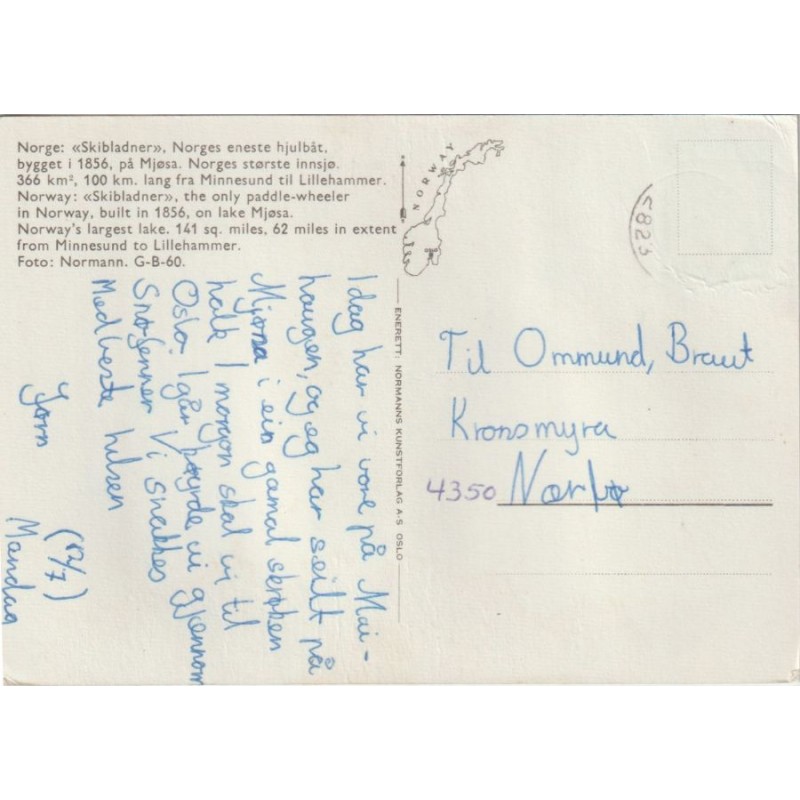 Norge: «Skibladner», Norges eneste hjulbåt,
bygget i 1856, på Mjøsa. Norges største innsjø.
366 km², 100 km. lang fra Minnesund til Lillehammer.
Norway: «Skibladner», the only paddle-wheeler
in Norway, built in 1856, on lake Mjøsa.
Norway's largest lake. 141 sq. miles, 62 miles in extent
from Minnesund to Lillehammer.
Foto: Normann. G-B-60.
NORWAY
5823
ENERETT: NORMANNS KUNSTFORLAG A-S OSLO
I dag har vi vore på Mai-
haugen, og eg har seilt på
Mjøsa i ein gamal
halk I morgon skal vi til
Oslo. I går køyrde vi gjennom
Vi snakkes
Med beste hilsen
Jorn
(12/7)
Mandag
Til Ommund, Braut
Kronsmyra
4350 Nærbø